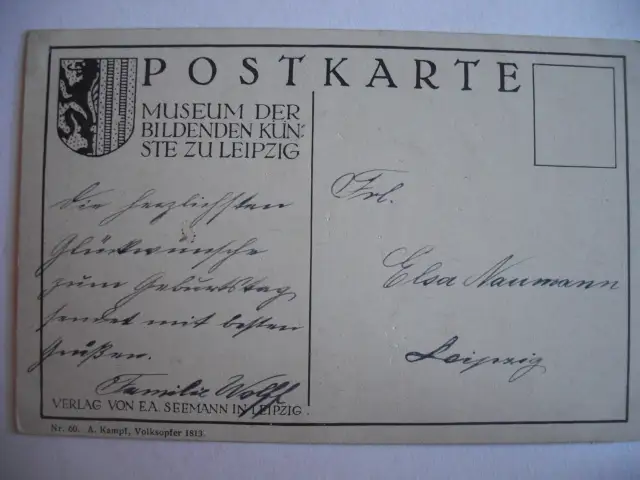 POSTKARTE
MUSEUM DER
BILDENDEN KÜN:
STE ZU LEIPZIG
Die herzlichsten
Glückwünsche
zum Geburtstag
sendet mit besten
Grüßen.
Familie Wolff
VERLAG VON E.A. SEEMANN IN LEIPZIG.
Nr. 60. A. Kampf, Volksopfer 1813.
Frl.
Elsa Naumann
Leipzig